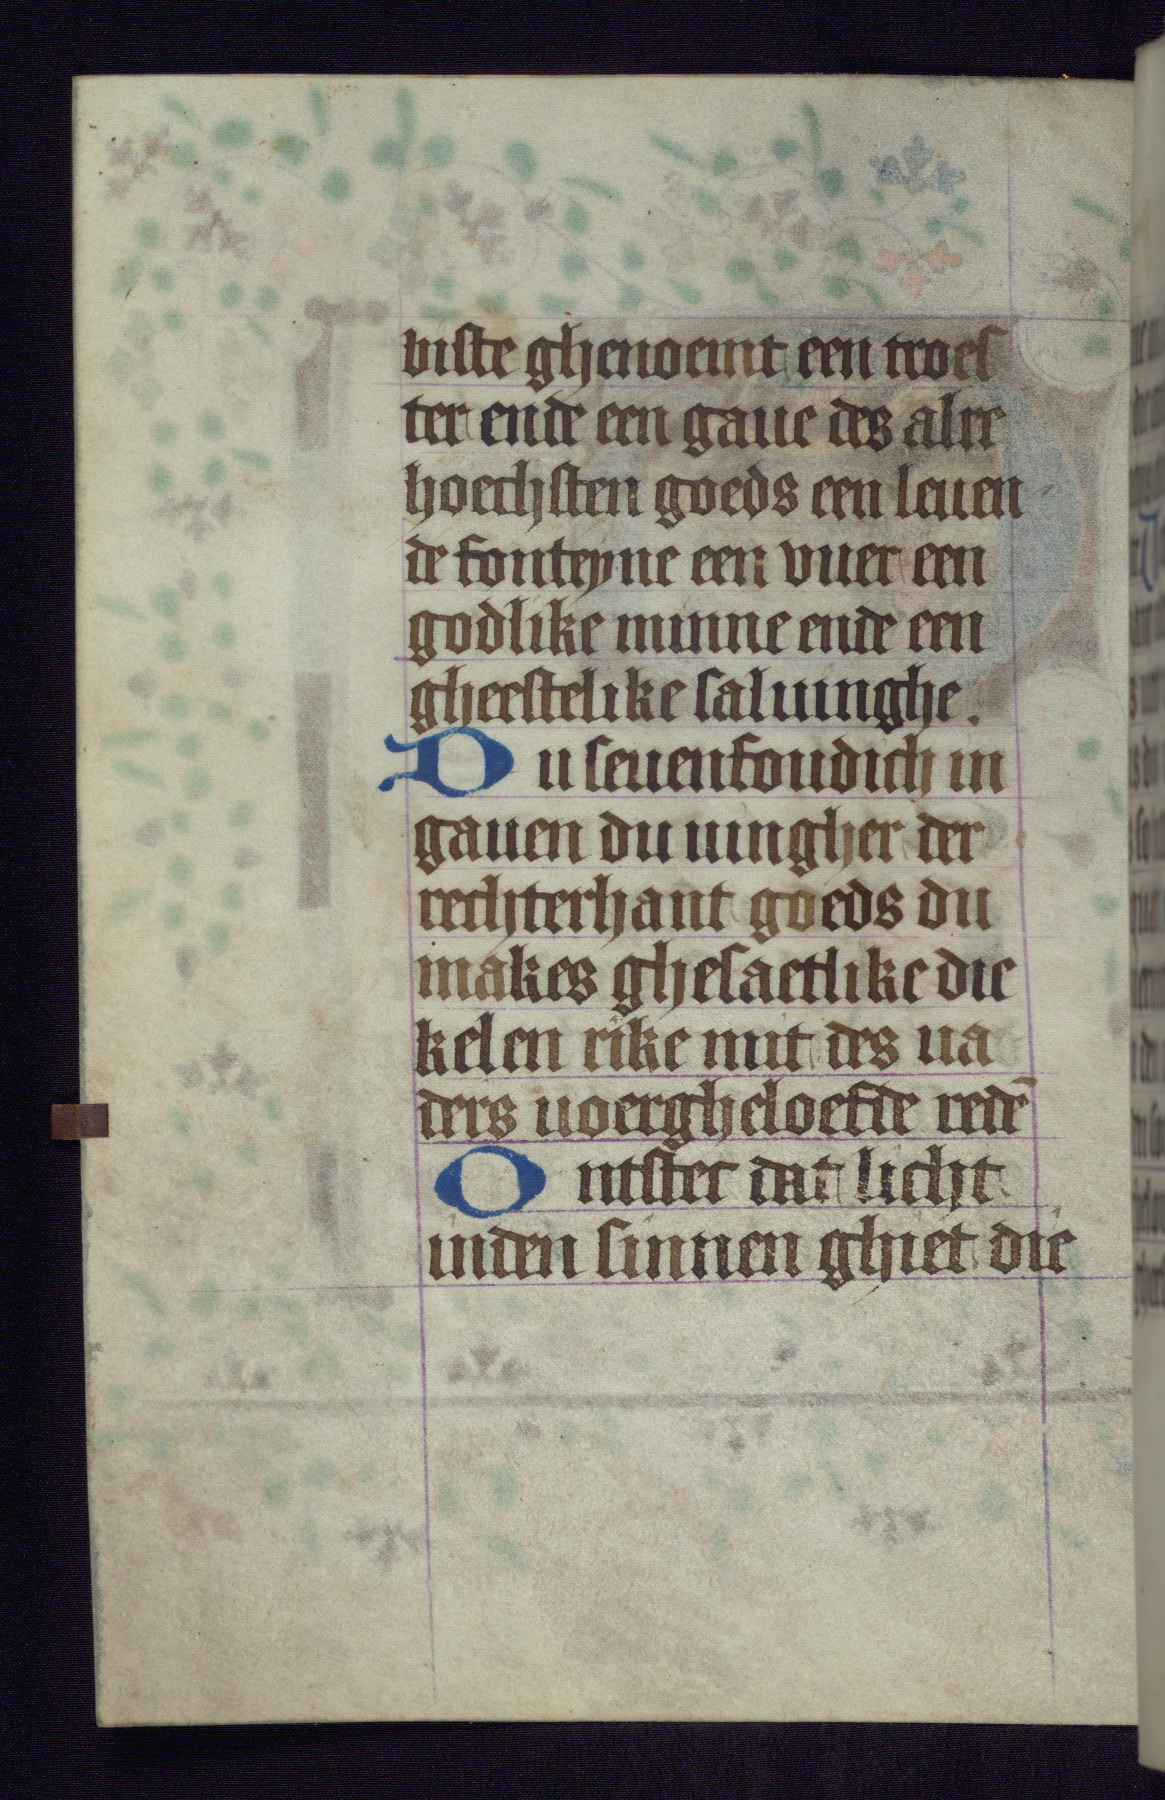 biste ghenoemt een troes
ter ende een gaue des alre
hoechsten goeds een leuen
de fonteyne een vuer een
godlike minne ende een
gheestelike saluinghe.
Du seuenfoudich in
gauen du uingher der
rechterhant goeds du
makes ghesaetlike die
kelen rike mit des ua
ders uoergheloefde redē
Ontster dat licht
inden sinnen ghiet die